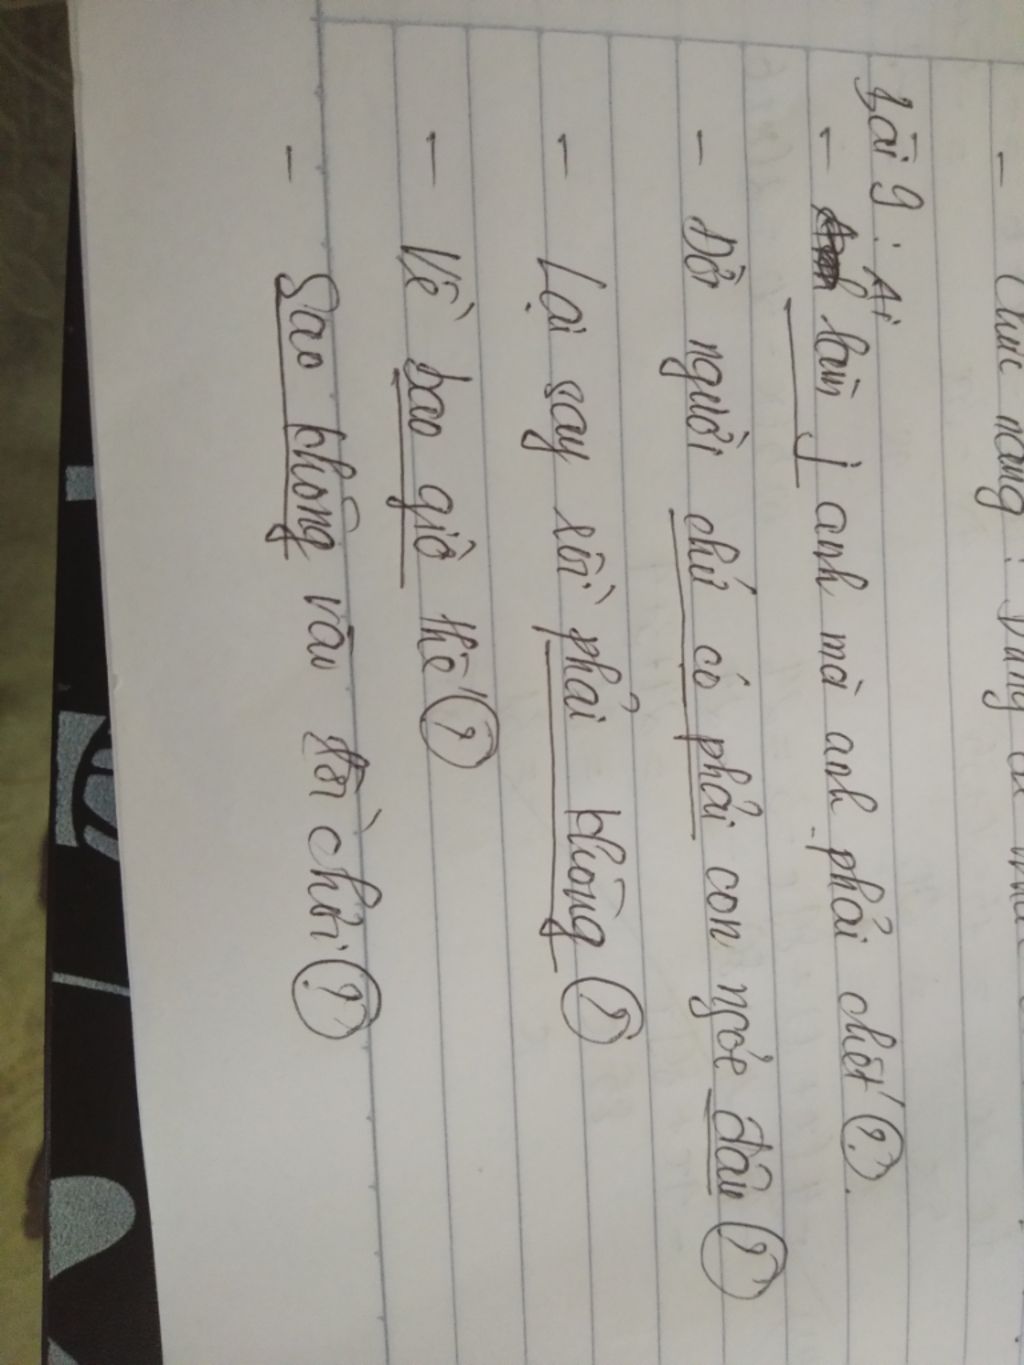 Bài 9: Ai
- làm j anh mà anh phải chết?
- Đời người chứ có phải con ngóe đâu?
- Lại say rồi phải không?
- Về bao giờ thế?
- Sao không vào tôi chơi?